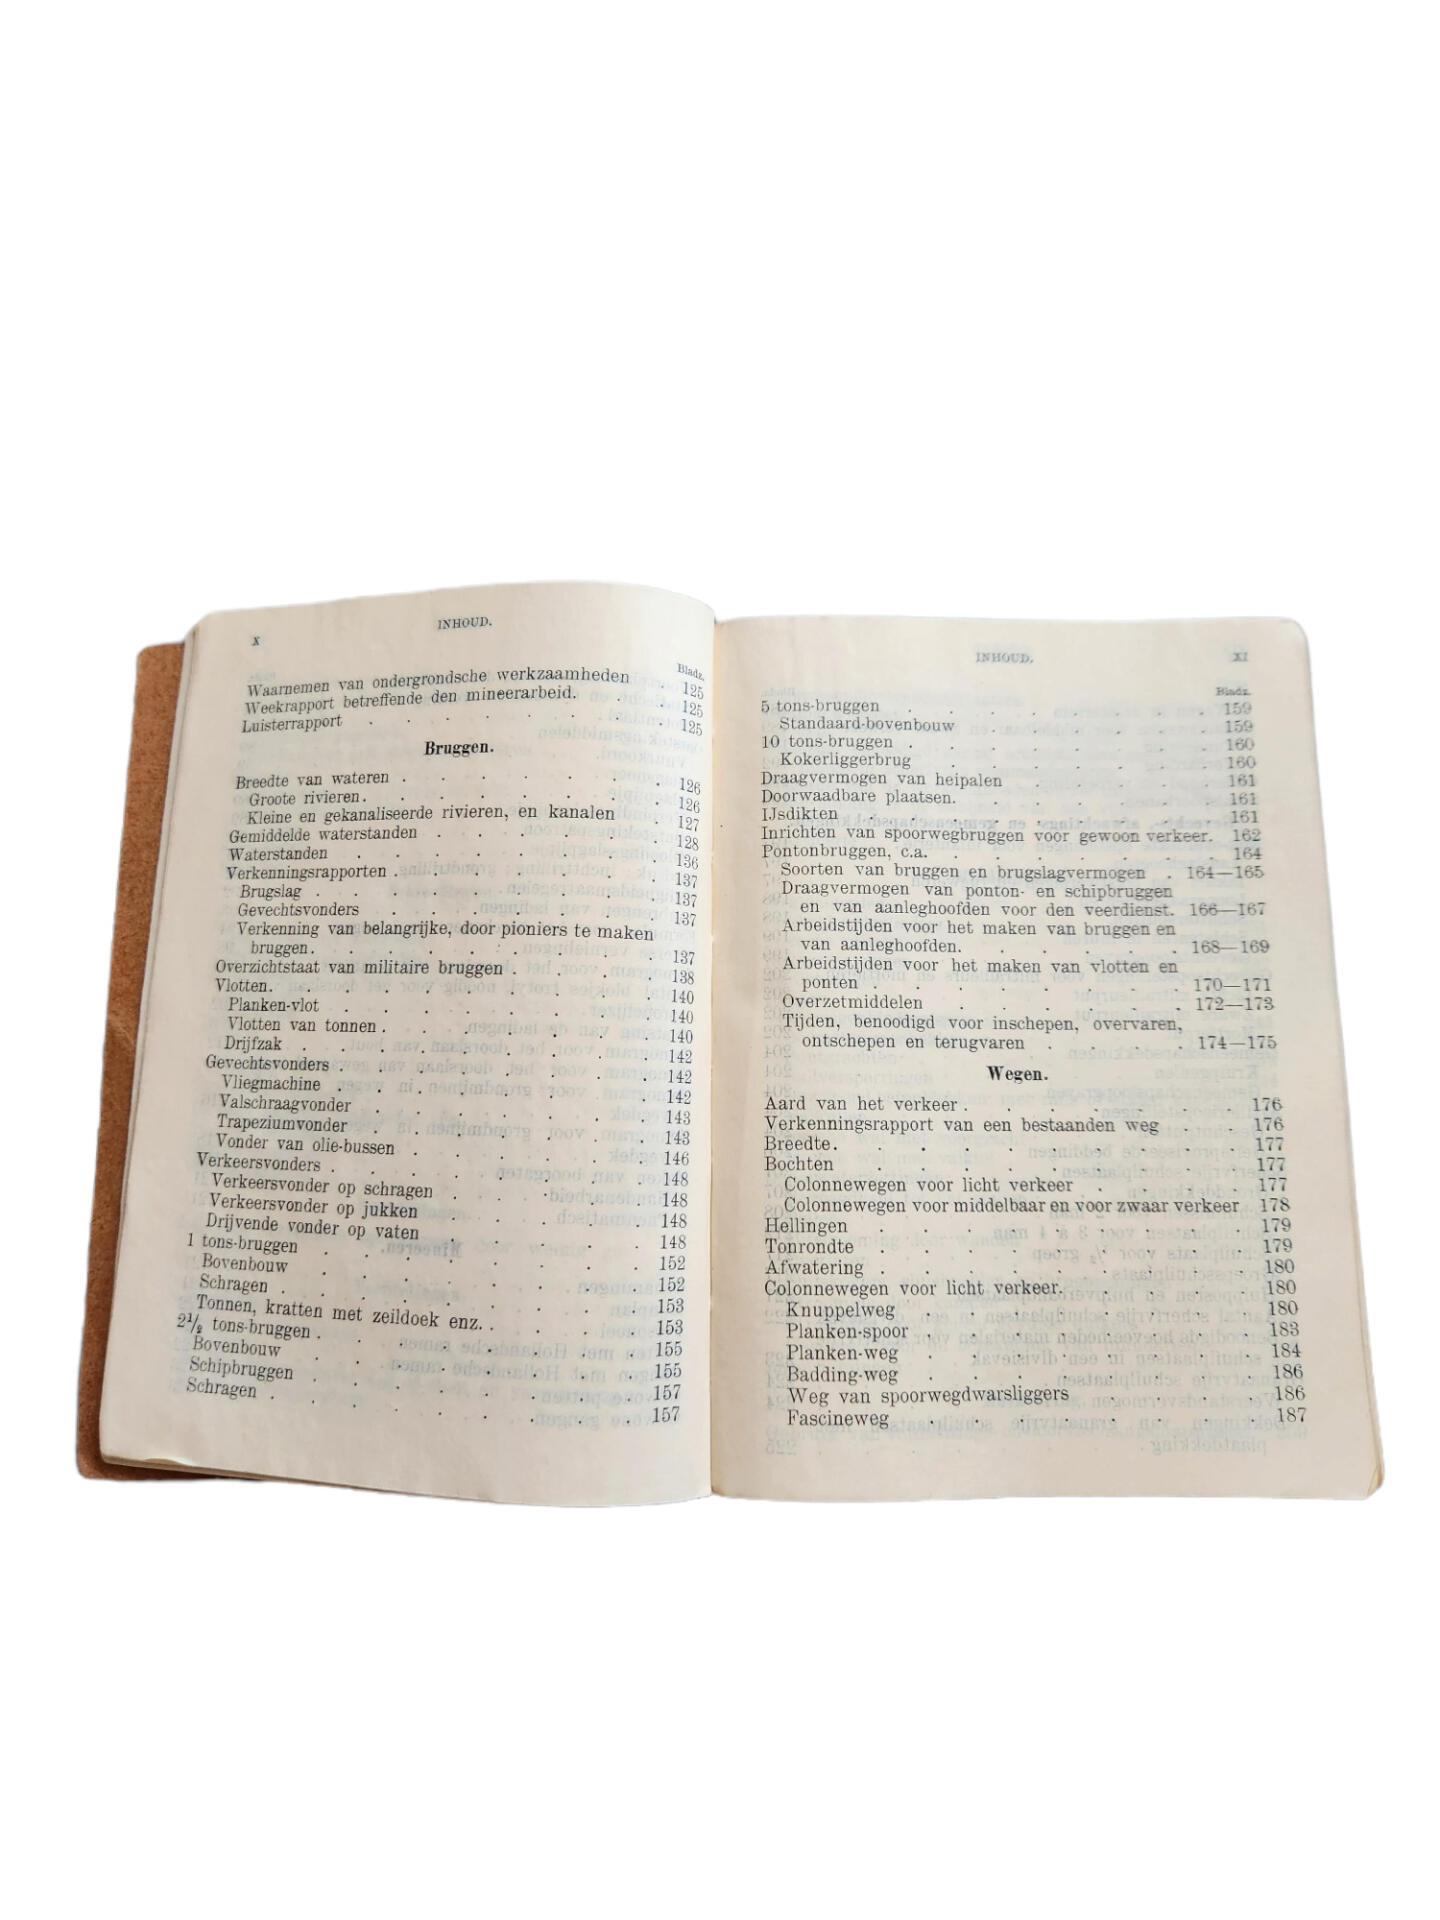 X
INHOUD.
Bladz.
Waarnemen van ondergrondsche werkzaamheden . 125
Weekrapport betreffende den mineerarbeid. . . 125
Luisterrapport . . . . . . . . 125
Bruggen.
Breedte van wateren . . . . . . . 126
Groote rivieren. . . . . . . . 126
Kleine en gekanaliseerde rivieren, en kanalen . 127
Gemiddelde waterstanden . . . . . . 128
Waterstanden . . . . . . . . 136
Verkenningsrapporten . . . . . . . 137
Brugslag . . . . . . . . . 137
Gevechtsvonders . . . . . . . 137
Verkenning van belangrijke, door pioniers te maken
bruggen. . . . . . . . . 137
Overzichtstaat van militaire bruggen . . . . 138
Vlotten. . . . . . . . . . 140
Planken-vlot . . . . . . . . 140
Vlotten van tonnen . . . . . . . 140
Drijfzak . . . . . . . . . 142
Gevechtsvonders . . . . . . . . 142
Vliegmachine . . . . . . . . 142
Valschraagvonder . . . . . . . 143
Trapeziumvonder . . . . . . . 143
Vonder van olie-bussen . . . . . . 146
Verkeersvonders . . . . . . . . 148
Verkeersvonder op schragen . . . . . 148
Verkeersvonder op jukken . . . . . 148
Drijvende vonder op vaten . . . . . 148
1 tons-bruggen . . . . . . . . 152
Bovenbouw . . . . . . . . 152
Schragen . . . . . . . . . 153
Tonnen, kratten met zeildoek enz. . . . . 153
2½ tons-bruggen . . . . . . . . 155
Bovenbouw . . . . . . . . 155
Schipbruggen . . . . . . . . 157
Schragen . . . . . . . . . 157
INHOUD.
XI
Bladz.
5 tons-bruggen . . . . . . . . 159
Standaard-bovenbouw . . . . . . 159
10 tons-bruggen . . . . . . . . 160
Kokerliggerbrug . . . . . . . 160
Draagvermogen van heipalen . . . . . 161
Doorwaadbare plaatsen. . . . . . . 161
IJsdikten . . . . . . . . . 161
Inrichten van spoorwegbruggen voor gewoon verkeer. 162
Pontonbruggen, c.a. . . . . . . . 164
Soorten van bruggen en brugslagvermogen . 164—165
Draagvermogen van ponton- en schipbruggen
en van aanleghoofden voor den veerdienst. 166—167
Arbeidstijden voor het maken van bruggen en
van aanleghoofden. . . . . . 168—169
Arbeidstijden voor het maken van vlotten en
ponton . . . . . . . . 170—171
Overzetmiddelen . . . . . . 172—173
Tijden, benoodigd voor inschepen, overvaren,
ontschepen en terugvaren . . . . 174—175
Wegen.
Aard van het verkeer . . . . . . . 176
Verkenningsrapport van een bestaanden weg . . 176
Breedte. . . . . . . . . . 177
Bochten . . . . . . . . . 177
Colonnewegen voor licht verkeer . . . . 177
Colonnewegen voor middelbaar en voor zwaar verkeer 178
Hellingen . . . . . . . . . 179
Tonrondte . . . . . . . . . 179
Afwatering . . . . . . . . . 180
Colonnewegen voor licht verkeer. . . . . 180
Knuppelweg . . . . . . . . 180
Planken-spoor . . . . . . . . 183
Planken-weg . . . . . . . . 184
Badding-weg . . . . . . . . 186
Weg van spoorwegdwarsliggers . . . . 186
Fascineweg . . . . . . . . 187